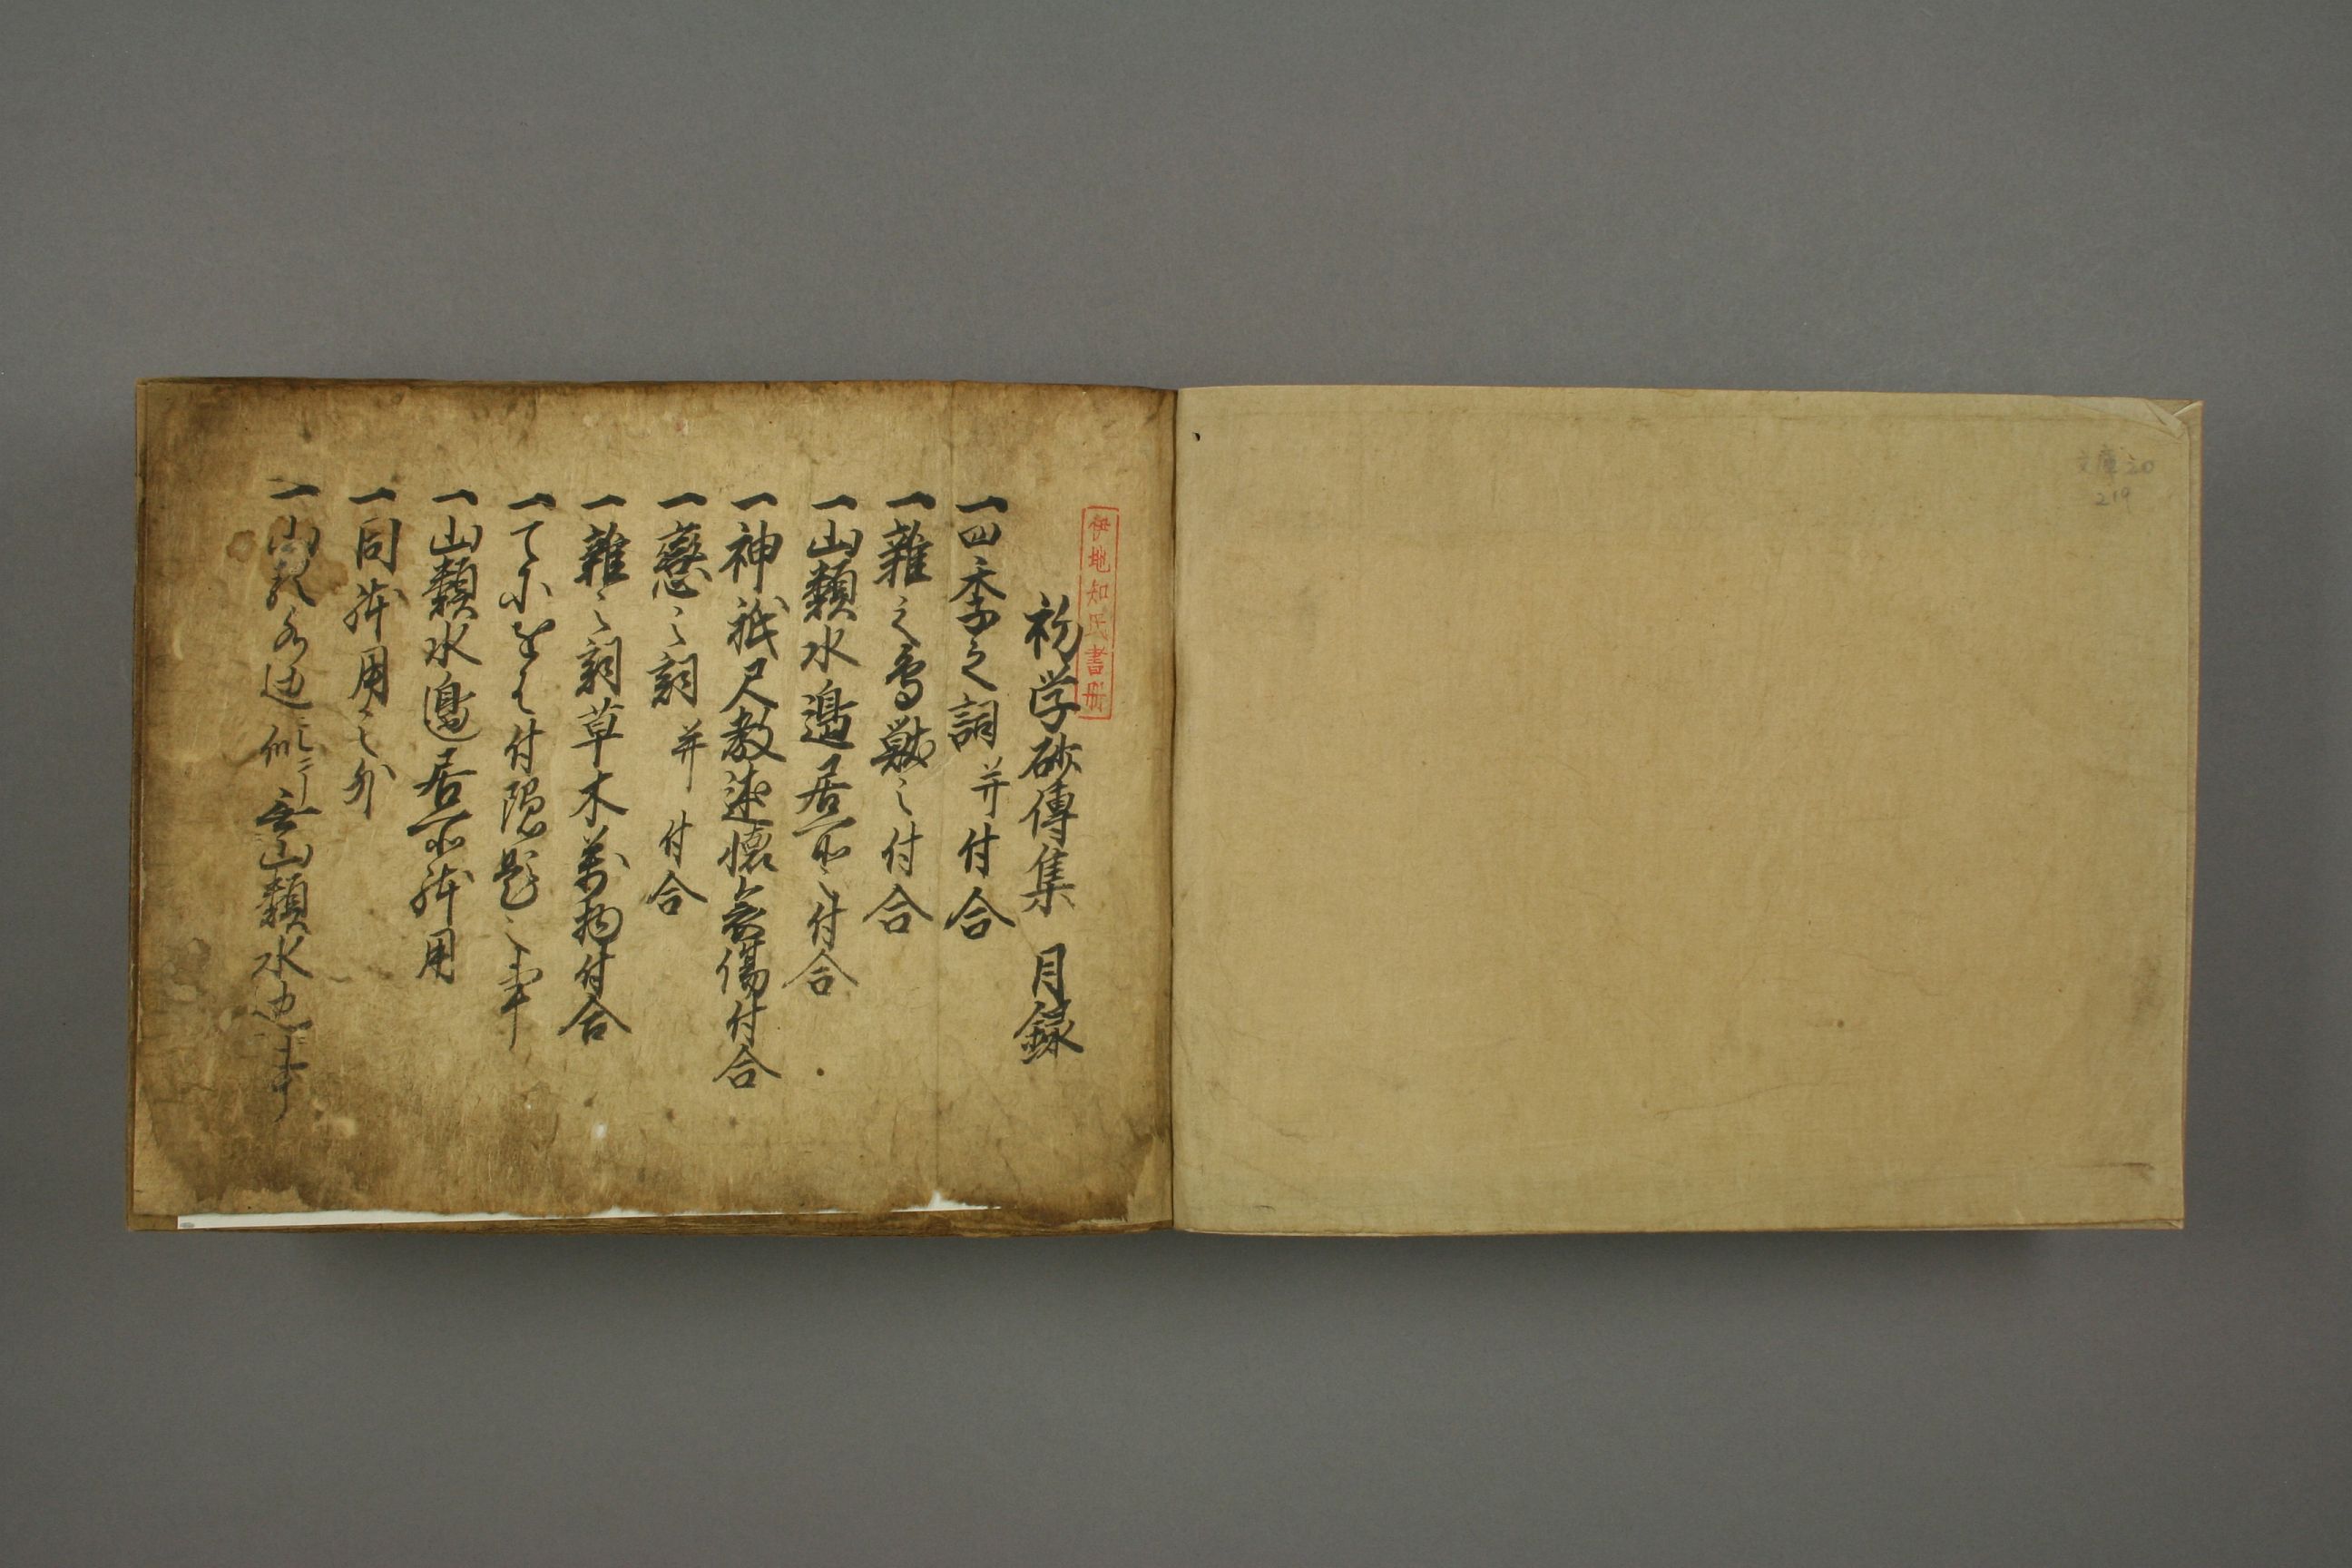 文庫20
219
伊地知氏書冊
初学砂傳集 月録
一四季之詞并付合
一雑之鳥獣之付合
一山類水邉居所之付合
一神祇尺教述懐哀傷付合
一戀之詞并付合
一雑之詞草木萬物付合
一てにをは付隠題之事
一山類水邉居所躰用
一同躰用之外
一山類水辺ニ似テ非山類水辺事